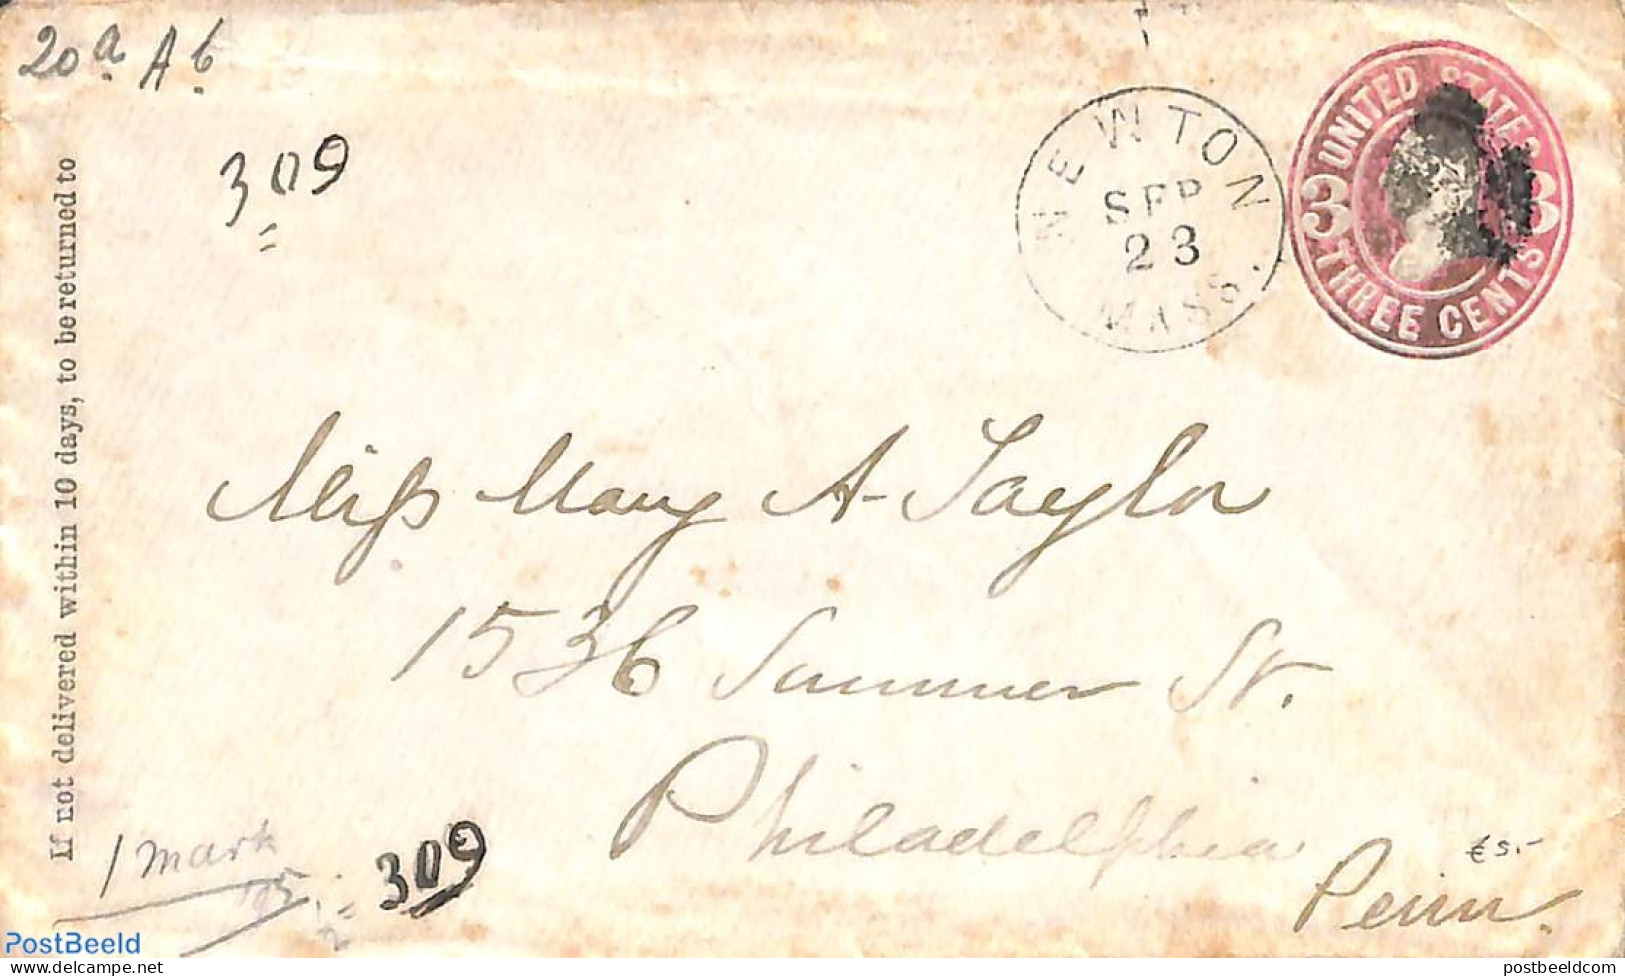 20a A b
309
NEWTON
SEP
23
MASS.
UNITED STATES
3 3
THREE CENTS
If not delivered within 10 days, to be returned to
Miss Mary A Taylor
1536 Summer St.
Philadelphia
Penn.
€ 5.-
1 mark
309
PostBeeld
postbeeldcom